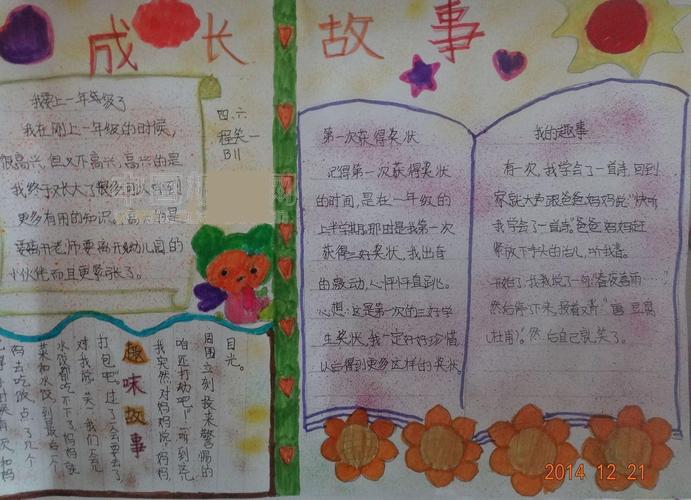 成长故事
我要上一年级了
我在刚上一年级的时候,
很高兴,但又不高兴,高兴的是
我终于长大了
更多有用的知识,
要离开老师要离开幼儿园的
小伙伴而且更紧张了。
四、六
程笑一
B11
第一次获得奖状
记得第一次获得奖状
的时间,是在一年级的
上半学期,那由是我第一次
获得三好奖状,我出奇
的激动,心怦怦直跳。
心想:这是第一次的三好学
生奖状,我一定好好珍惜,
以后得到更多这样的奖状。
我的趣事
有一次,我学会了一首诗,回到
家就大声跟爸爸妈妈说:“快听
我学会了一首诗”爸爸妈妈赶
紧放下手头的活儿,听我
开始了,我我说了一句“春夜喜雨……”
然后停了下来,接着又 豆腐
(杜甫)”。然后自己就笑了。
趣味故事
打包吧”。过了一会要去了
对我说:笑一我们
水饺都吃不下了妈妈就
菜和水饺到最后
妈去吃饭点了几个
我突然对妈妈说“妈妈
咱匹打劫吧!”听到
周围立刻投来警惕的
目光。
2014 12 21